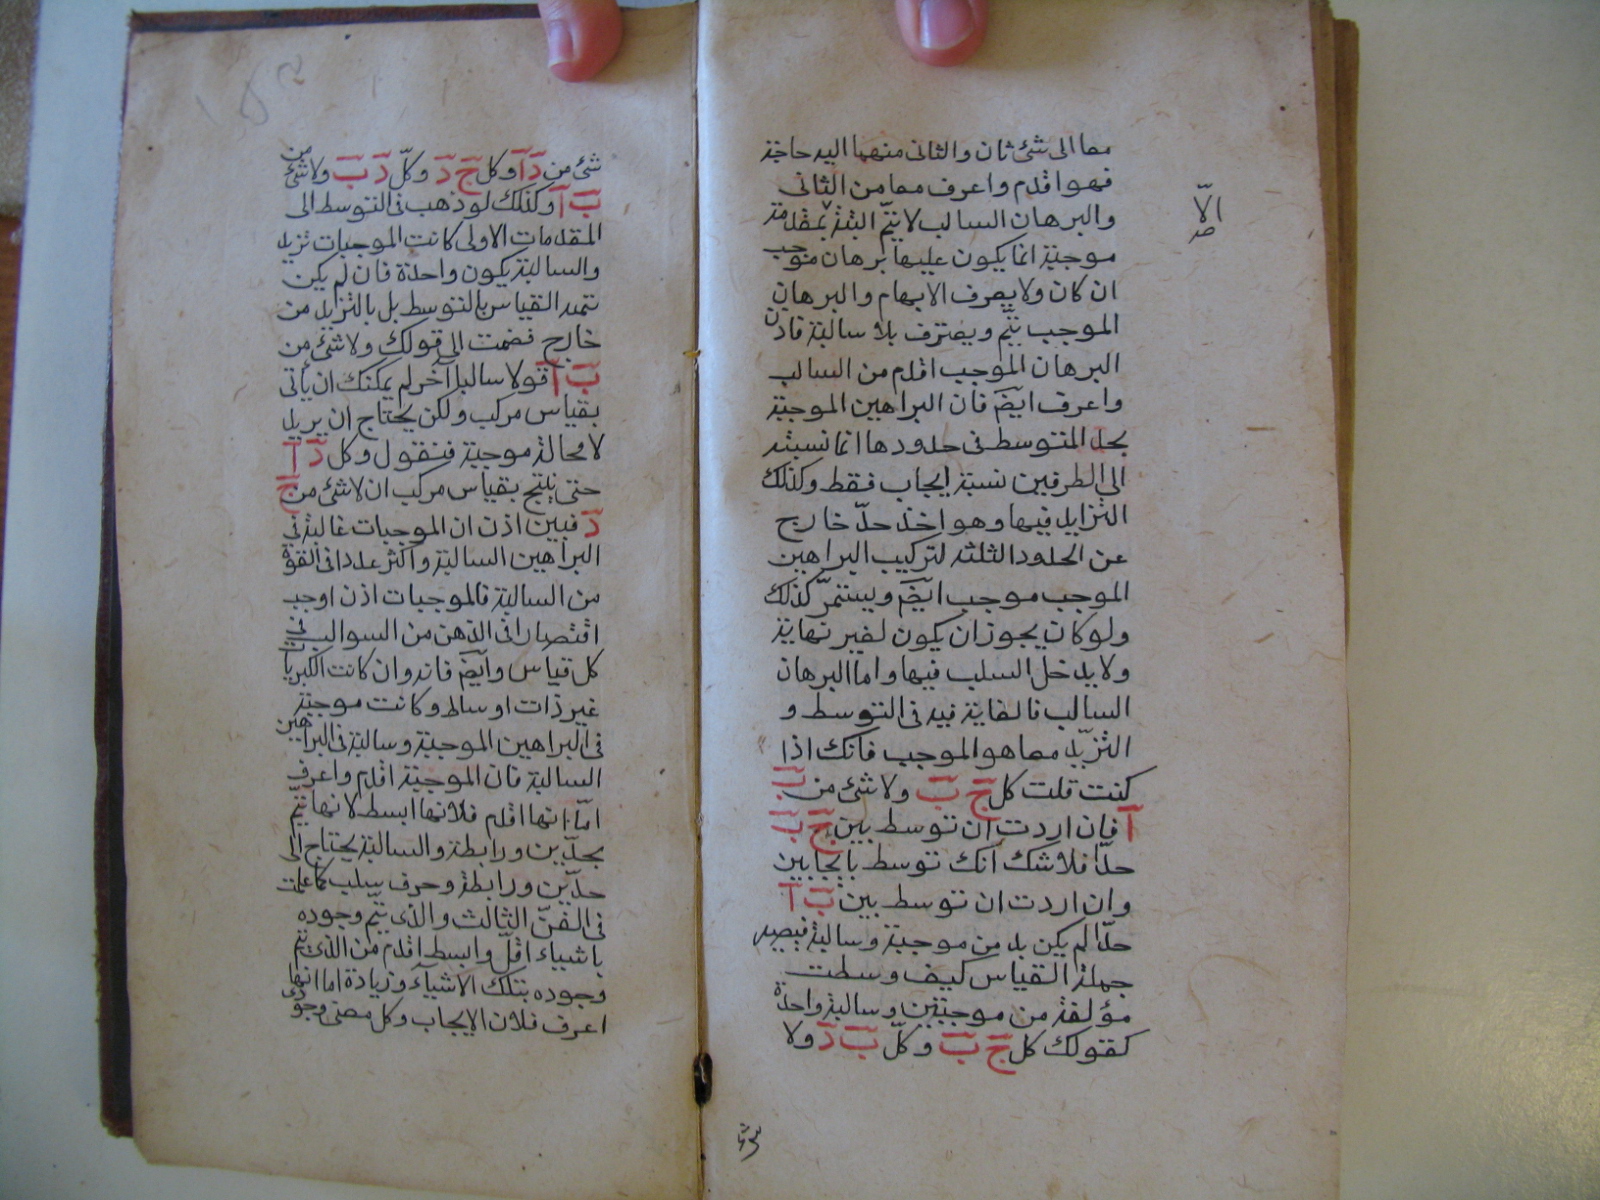 معا الى شئ ثان والثانى منهما اليه حاجة
فهو اقدم واعرف معا من الثانى
والبرهان السالب لا يتم البتة بمقدمة
موجبة انما يكون عليها برهان موجب
ان كان ولا يعرف الابهام والبرهان
الموجب يتم ويعترف بلا سالبة فاذن
البرهان الموجب اقدم من السالب
واعرف ايضَ فان البراهين الموجبة
بحد المتوسط فى حدودها انما نسبته
الى الطرفين نسبة ايجاب فقط وكذلك
التزايد فيها وهو اخذ حدّ خارج
عن الحدود الثلثة لتركيب البراهين
الموجب موجب ايضَ ويستمرّ كذلك
ولو كان يجوز ان يكون لغير نهاية
ولا يدخل السلب فيها واما البرهان
السالب فالغاية فيه فى التوسط و
التزيّد معا هو الموجب فانك اذا
كنت قلت كل ج ب ولا شئ من ب
آ فان اردت ان توسط بين ج ب
حدّا فلا شك انك توسط بايجابين
وان اردت ان توسط بين ب آ
حدّا لم يكن بد من موجبة وسالبة فيصير
جملة القياس كيف وسطت
مؤلفة من موجبتين وسالبة واحدة
كقولك كل ج ب وكلّ ب د ولا
الاّ
صح
شئ من د آ وكل ج د وكلّ د ب ولا شئ من
ب آ وكذلك لو ذهب فى التوسط الى
المقدمات الاولى كانت الموجبات تزيد
والسالبة يكون واحدة فان لم يكن
تمد القياس بالتوسط بل بالتزايد من
خارج فضمت الى قولك ولا شئ من
ب آ قولا سالبا آخر لم يمكنك ان يأتى
بقياس مركب ولكن يحتاج ان يريد
لا محالة موجبة فنقول وكل د آ
حتى ينتج بقياس مركب ان لا شئ من ج
د فبين اذن ان الموجبات غالبة فى
البراهين السالبة واكثر عددا فى القوة
من السالبة فالموجبات اذن اوجب
اقتصارا فى الذهن من السوالب فى
كل قياس وايضَ فانه وان كانت الكبريات
غير ذات اوساط وكانت موجبة
فى البراهين الموجبة وسالبة فى البراهين
السالبة فان الموجبة اقدم واعرف
امّا انها اقدم فلانها ابسط لانها يتمّ
بحدّين ورابطة والسالبة يحتاج الى
حدّين ورابطة وحرف سلب كما علمت
فى الفنّ الثالث والذى يتم وجوده
باشياء اقلّ وابسط اقدم من الذى يتم
وجوده بتلك الاشياء وزيادة اما انها
اعرف فلان الايجاب وكل معنى وجودى